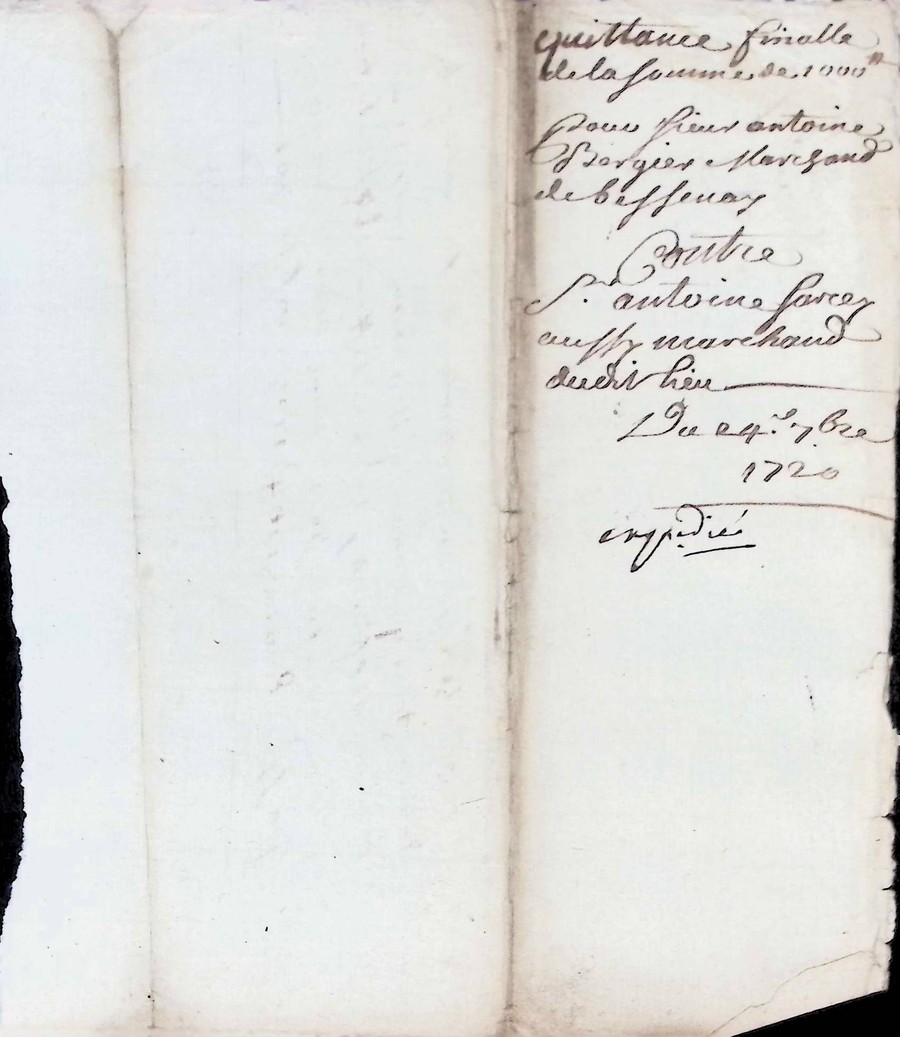 quittance finalle
de la somme de 1000ᵗᵗ
pour sieur antoine
Bergier Marchand
de bessenay
Contre
Sʳ antoine garcey
aussy marchand
dudit lieu
Du 24ᵉ 7bre
1720
expediée